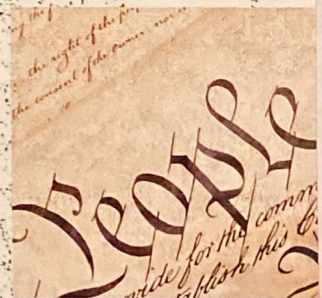 the right of the
the consent of the owner nor
People
vide for the comm
ablish this C